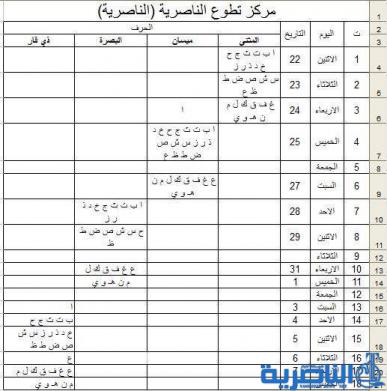 مركز تطوع الناصرية (الناصرية)
ت اليوم التاريخ الحرف
المثنى ميسان البصرة ذي قار
1 الاثنين 22 ا ب ت ث ج ح
خ د ذ ر ز
2 الثلاثاء 23 س ش ص ض ط
ظ ع
3 الاربعاء 24 غ ف ق ك ل م
ن هـ و ي ا
4 الخميس 25 ا ب ت ث ج ح خ د
ذ ر ز س ش ص
ض ط ظ ع
5 الجمعة
6 السبت 27 غ ف ق ك ل م ن
هـ و ي
7 الاحد 28 ا ب ت ث ج ح خ د ذ
ر ز
8 الاثنين 29 س ش ص ض ط
ظ
9 الثلاثاء
10 الاربعاء 31 ع غ ف ق ك ل
11 الخميس 1 م ن هـ و ي
12 الجمعة
13 السبت 3 ا
14 الاحد 4 ب ت ث ج ح
15 الاثنين 5 خ د ذ ر ز س ش
ص ض ط ظ
16 الثلاثاء 6 ع
17 7 غ ف ق ك ل
18 م ن هـ و ي
الناصرية